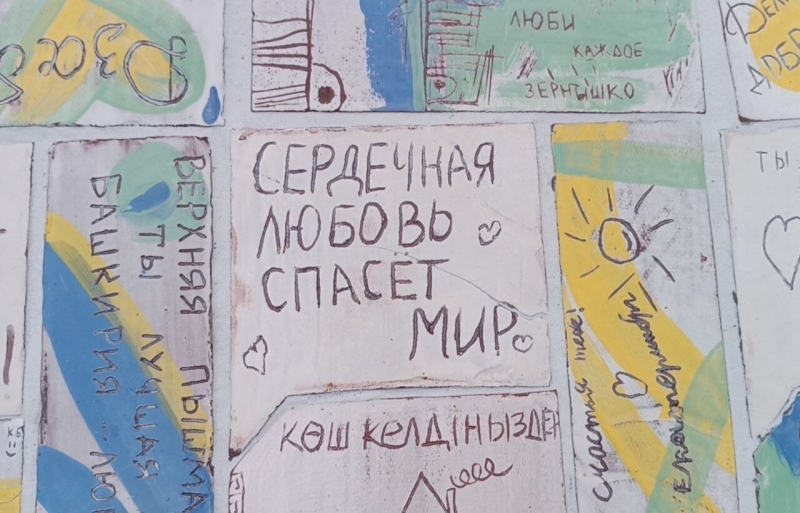 ЛЮБИ
КАЖДОЕ
ЗЁРНЫШКО
ДЕЛ
ДОБР
ВЕРХНЯЯ ПЫШМА
ТЫ ЛУЧШАЯ
БАШКИРИЯ - ЛЮ
СЕРДЕЧНАЯ
ЛЮБОВЬ
СПАСЕТ
МИР
Счастья тебе!
Екатеринбург
ТЫ
КӨШ КЕЛДІҢІЗДЕР